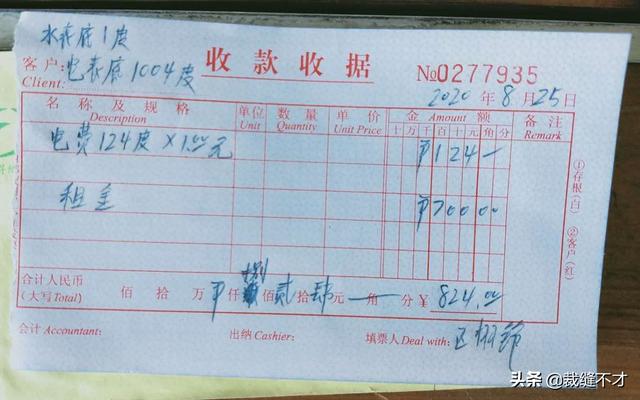 水表底1度
收款收据
客户: 电表底1004度
Client:
№0277935
2020年8月25日
名称及规格 Description 单位 Unit 数量 Quantity 单价 Unit Price 金 Amount 额 十万千百十元角分 备注 Remark
电费124度×1.00元 ¥124—
租金 ¥700.00
合计人民币
(大写Total) 佰 拾 万 ¥ 仟 捌 佰 贰 拾 肆 元 — 角 分 ¥ 824.00
会计 Accountant: 出纳 Cashier: 填票人 Deal with:
①存根(白) ②客户(红)
头条 @裁缝不才